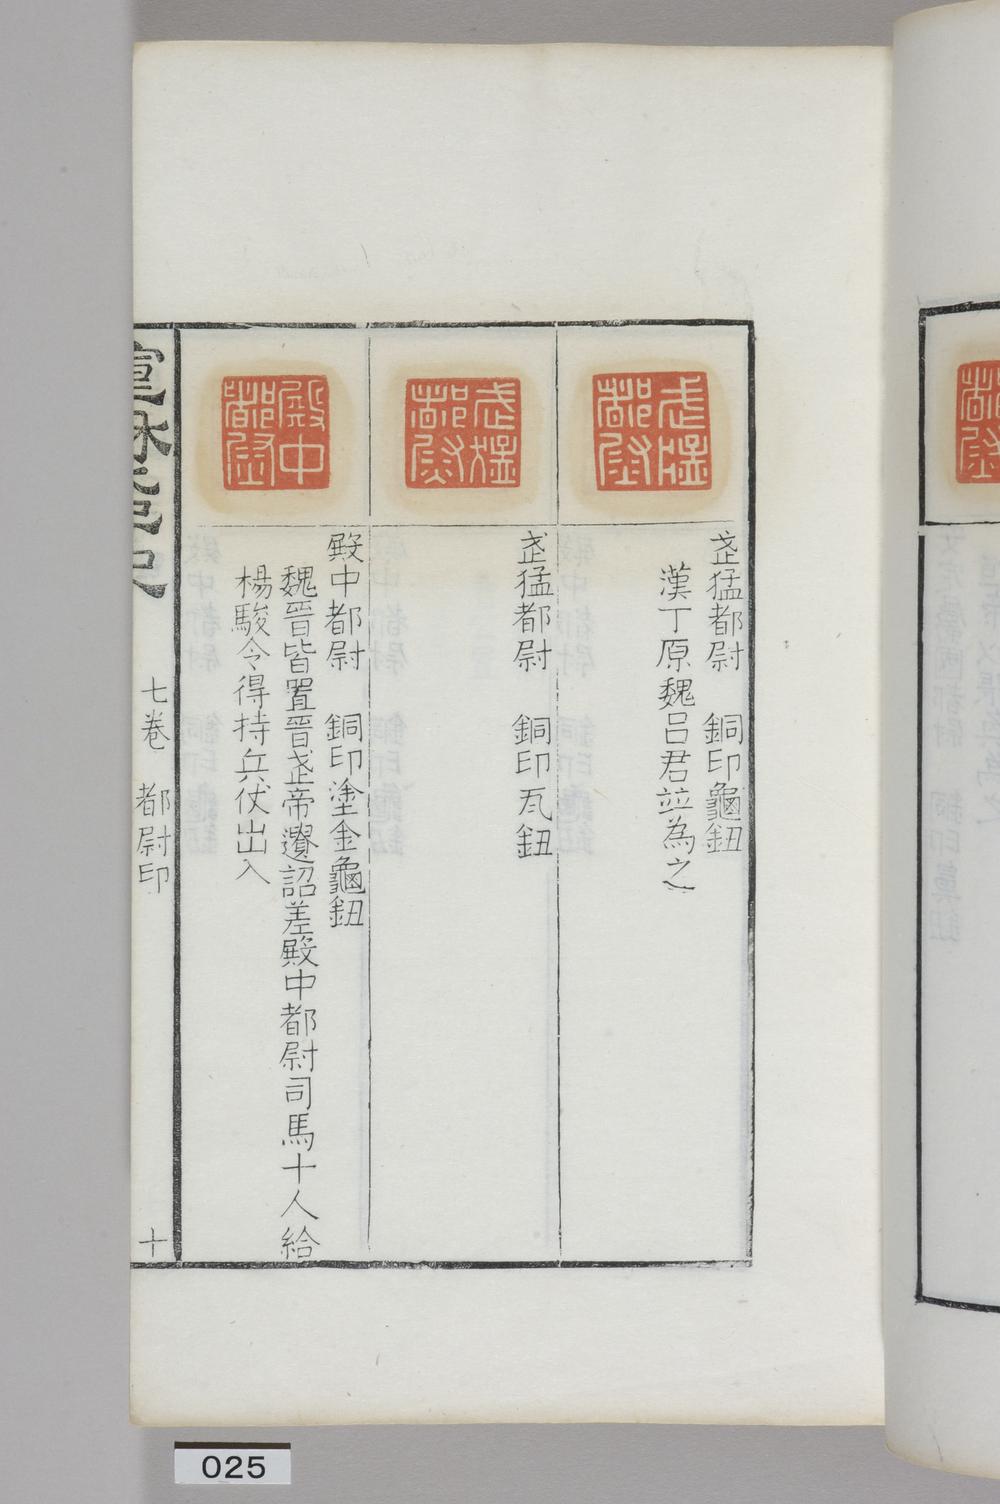 武猛都尉
武猛都尉　銅印龜鈕
漢丁原魏吕君竝為之
武猛都尉
武猛都尉　銅印瓦鈕
殿中都尉
殿中都尉　銅印塗金龜鈕
魏晉皆置晉武帝遼詔差殿中都尉司馬十人給
楊駿令得持兵仗出入
七卷　都尉印　十
025